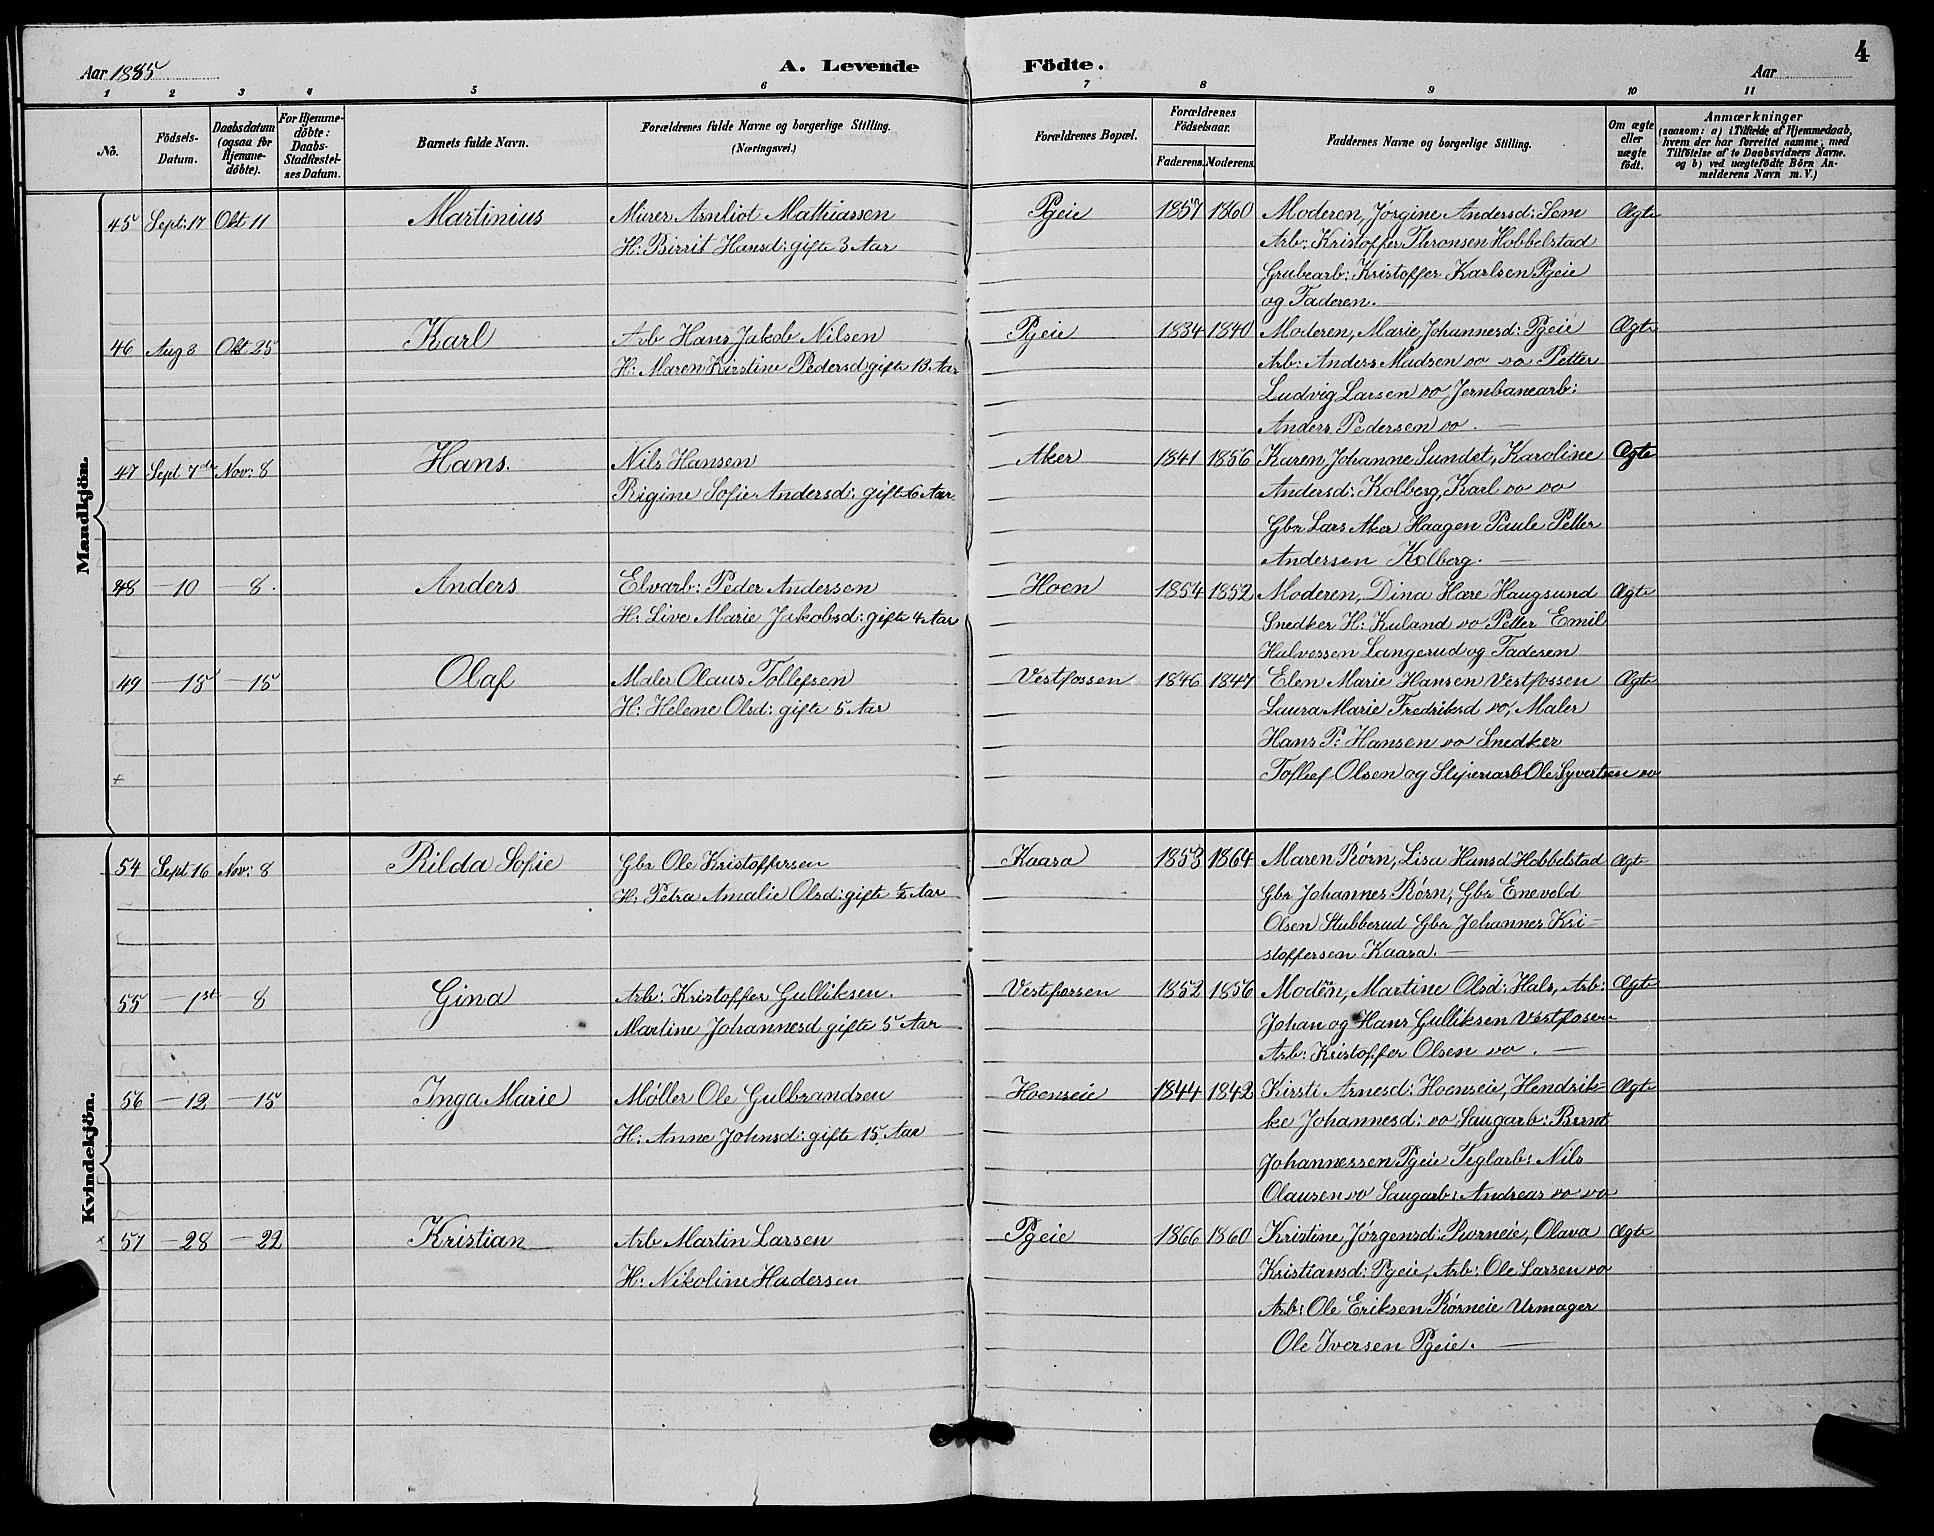 Aar 1885
A. Levende Födte.
Aar
4
1 2 3 4 5 6 7 8 9 10 11
No.
Födsels-Datum.
Daabsdatum (ogsaa for Hjemme-döbte).
For Hjemme-döbte: Daabs-Stadfæstel-ses Datum.
Barnets fulde Navn.
Forældrenes fulde Navne og borgerlige Stilling.
(Næringsvei.)
Forældrenes Bopæl.
Forældrenes Födselsaar.
Faderens. Moderens.
Faddernes Navne og borgerlige Stilling.
Om ægte eller uægte födt.
Anmærkninger
(saasom: a) i Tilfælde af Hjemmedaab,
hvem der har forrettet samme, med
Tilföielse af to Daabsvidners Navne,
og b) ved uægtefödte Börn An-
melderens Navn m. V.)
Mandkjön.
45 Sept: 17 Okt 11 Martinius Murer Arnliot Mathiassen Pgeie 1857 1860 Moderen, Jørgine Andersd: Sem Ægte
H: Birrit Hansd: gifte 3 Aar Arb: Kristoffer Thronsen Hobbelstad
Grubearb: Kristoffer Karlsen Pgeie
og Faderen.
46 Aug 3 Okt 25 Karl Arb Hans Jakob Nilsen Pgeie 1834 1840 Moderen, Marie Johannesd: Pgeie Ægte
H: Maren Kirstine Pedersd: gifte 13 Aar Arb: Anders Madsen do do Petter
Ludvig Larsen do Jernbanearb:
Anders Pedersen do.
47 Sept 7de Nov: 8 Hans. Nils Hansen Aker 1841 1856 Karen Johanne Sundet, Karoline Ægte
Rigine Sofie Andersd: gifte 6 Aar Andersd: Kolberg, Karl do do
Gbr Lars Aker Haagen Paule Petter
Andersen Kolberg.
48 — 10 — 8. Anders Elvarb: Peder Andersen Hoen 1854 1852 Moderen, Dina Hære Haugsund Ægte
H: Live Marie Jakobsd: gifte 4 Aar Snedker H: Kuland do Petter Emil
Halvorsen Langerud og Faderen
49 — 15 — 15 Olaf Maler Olaus Tollefsen Vestfossen 1846 1847 Elen Marie Hansen Vestfossen Ægte
H: Helene Olsd: gifte 5 Aar Laura Marie Fredriksd do, Maler
Hans P: Hansen do Snedker
Tollef Olsen og Sliperiarb Ole Syvertsen do
Kvindekjön.
54 Sept 16 Nov: 8 Rilda Sofie Gbr Ole Kristoffersen Kaara 1853 1864 Maren Rørn, Lisa Hansd Hobbelstad Ægte
H: Petra Amalie Olsd: gifte ½ Aar Gbr Johannes Rørn, Gbr Enevold
Olsen Stubberud Gbr Johannes Kri-
stoffersen Kaara.
55 — 1st — 8 Gina Arb: Kristoffer Gulliksen. Vestfossen 1852 1856 Modēn, Martine Olsd: Hals, Arb: Ægte
Martine Johannesd gifte 5 Aar Johan og Hans Gulliksen Vestfossen
Arb: Kristoffer Olsen do.
56 — 12 — 15 Inga Marie Møller Ole Gulbrandsen Hoenseie 1844 1842 Kirsti Arnesd: Hoenseie, Hendrik- Ægte
H: Anne Johnsd: gifte 15 Aar ke Johannesd: do Saugarb: Bernt
Johannessen Pgeie Teglarb: Nils
Olausen do Saugarb: Andreas do do
57 — 28 — 22 Kristian Arb Martin Larsen Pgeie 1866 1860 Kristine Jørgensd: Rørneie, Olava Ægte
H: Nikoline Hadersen Kristiansd: Pgeie, Arb: Ole Larsen do
Arb: Ole Eriksen Rørneie Urmager
Ole Iversen Pgeie.